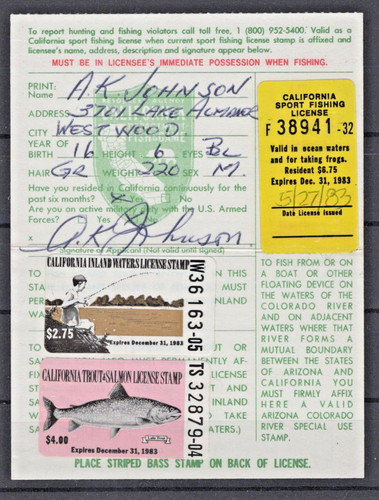 To report hunting and fishing violators call toll free, 1 (800) 952-5400. Valid as a
California sport fishing license when current sport fishing license stamp is affixed and
licensee's name, address, description and signature appear below.
MUST BE IN LICENSEE'S IMMEDIATE POSSESSION WHEN FISHING.
PRINT:
NAME A.K. JOHNSON
ADDRESS 3701 LAKE ALMANOR
CITY WESTWOOD
YEAR OF
BIRTH 16 HEIGHT 6 EYES BL
HAIR GR WEIGHT 220 SEX M.
Have you resided in California continuously for the
past six months?
Are you on active military duty with the U.S. Armed
Forces?
X A.K. Johnson
(Signature of Applicant (Not valid until signed)
CALIFORNIA
SPORT FISHING
LICENSE
F 38941-32
Valid in ocean waters
and for taking frogs.
Resident $6.75
Expires Dec. 31, 1983
5/27/83
Date License Issued
CALIFORNIA INLAND WATERS LICENSE STAMP
$2.75
Expires December 31, 1983
IW36163-05
CALIFORNIA TROUT & SALMON LICENSE STAMP
$4.00
Lake Trout
Expires December 31, 1983
TS32879-04
TO FISH FROM OR ON
A BOAT OR OTHER
FLOATING DEVICE ON
THE WATERS OF THE
COLORADO RIVER
AND ON ADJACENT
WATERS WHERE THAT
RIVER FORMS A
MUTUAL BOUNDARY
BETWEEN THE STATES
OF ARIZONA AND
CALIFORNIA YOU
MUST FIRMLY AFFIX
HERE A VALID
ARIZONA COLORADO
RIVER SPECIAL USE
STAMP.
PLACE STRIPED BASS STAMP ON BACK OF LICENSE.